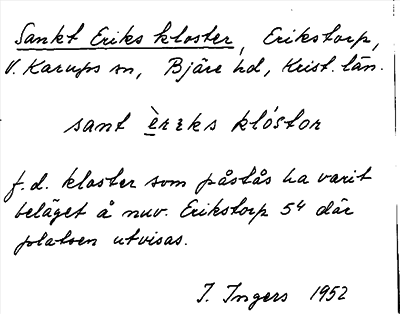 Sankt Eriks kloster, Erikstorp,
V. Karups sn, Bjäre hd, Krist. län.
sant èrɪks klóstor
f.d. kloster som påstås ha varit
beläget å nuv. Erikstorp 5⁴ där
platsen utvisas.
I. Ingers 1952